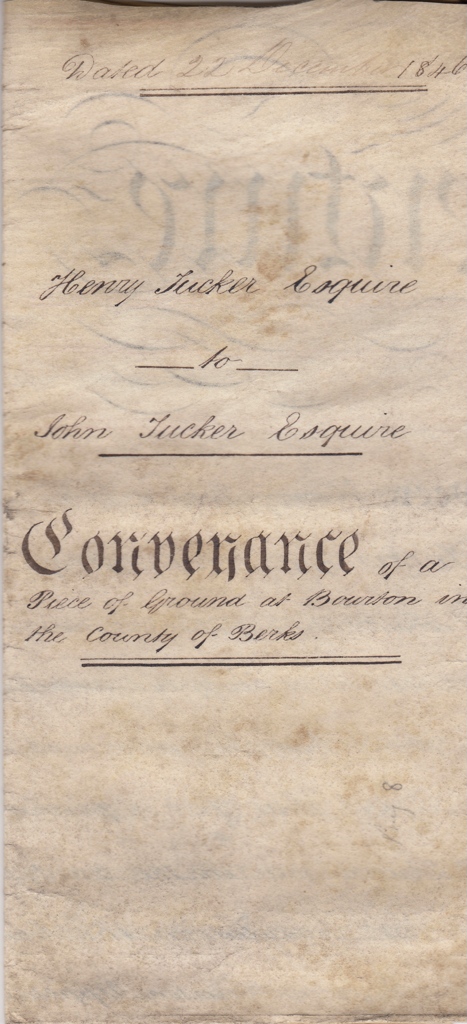 Dated 22 December 1846
Henry Tucker Esquire
to
John Tucker Esquire
Conveyance of a
Piece of Ground at Bourton in
the County of Berks.
8